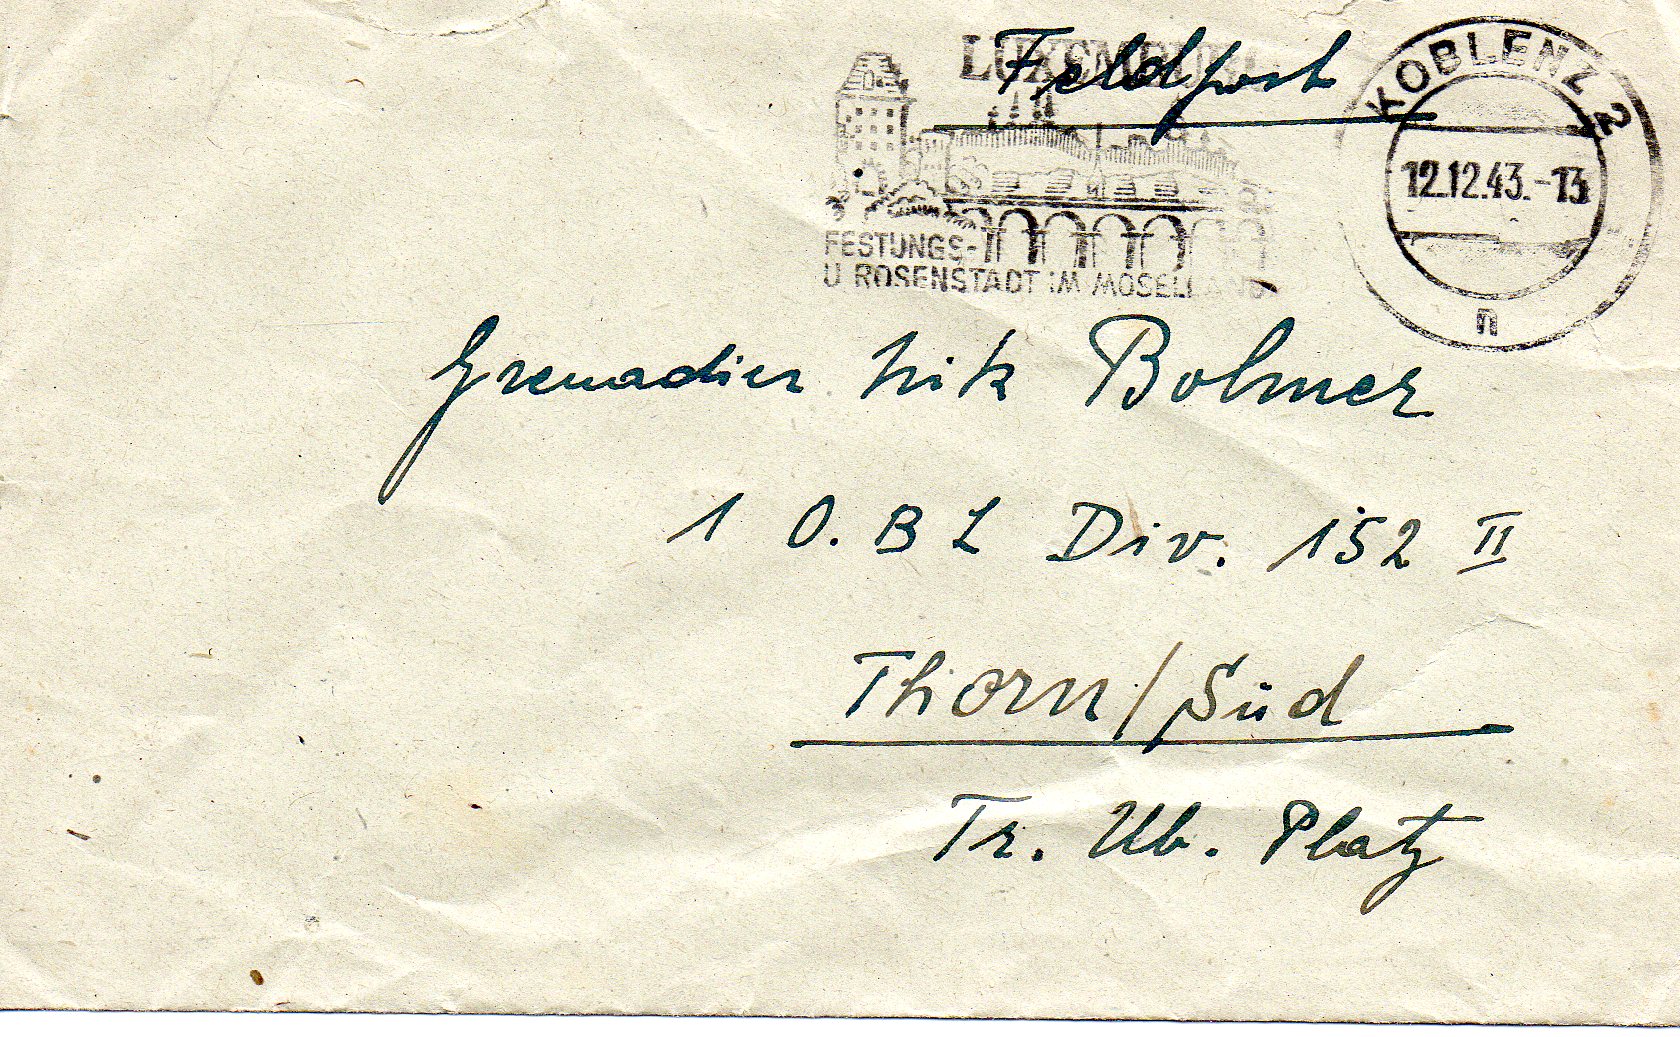 Feldpost
LUXEMBURG
KOBLENZ 2
12.12.43.-13
n
FESTUNGS-
U ROSENSTADT IM MOSELLAND
Grenadier Nik Bolmer
1 O. B L Div. 152 II
Thorn/Süd
Tr. Üb. Platz